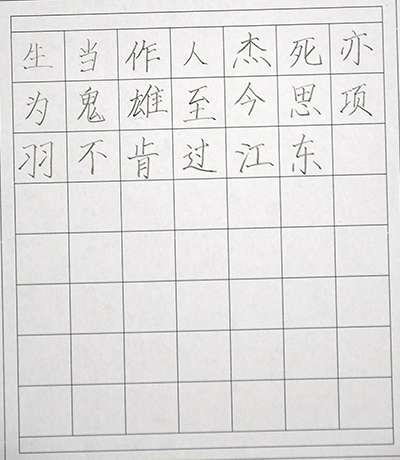 坐当作人杰死亦
为鬼雄至今思项
羽不肯过江东